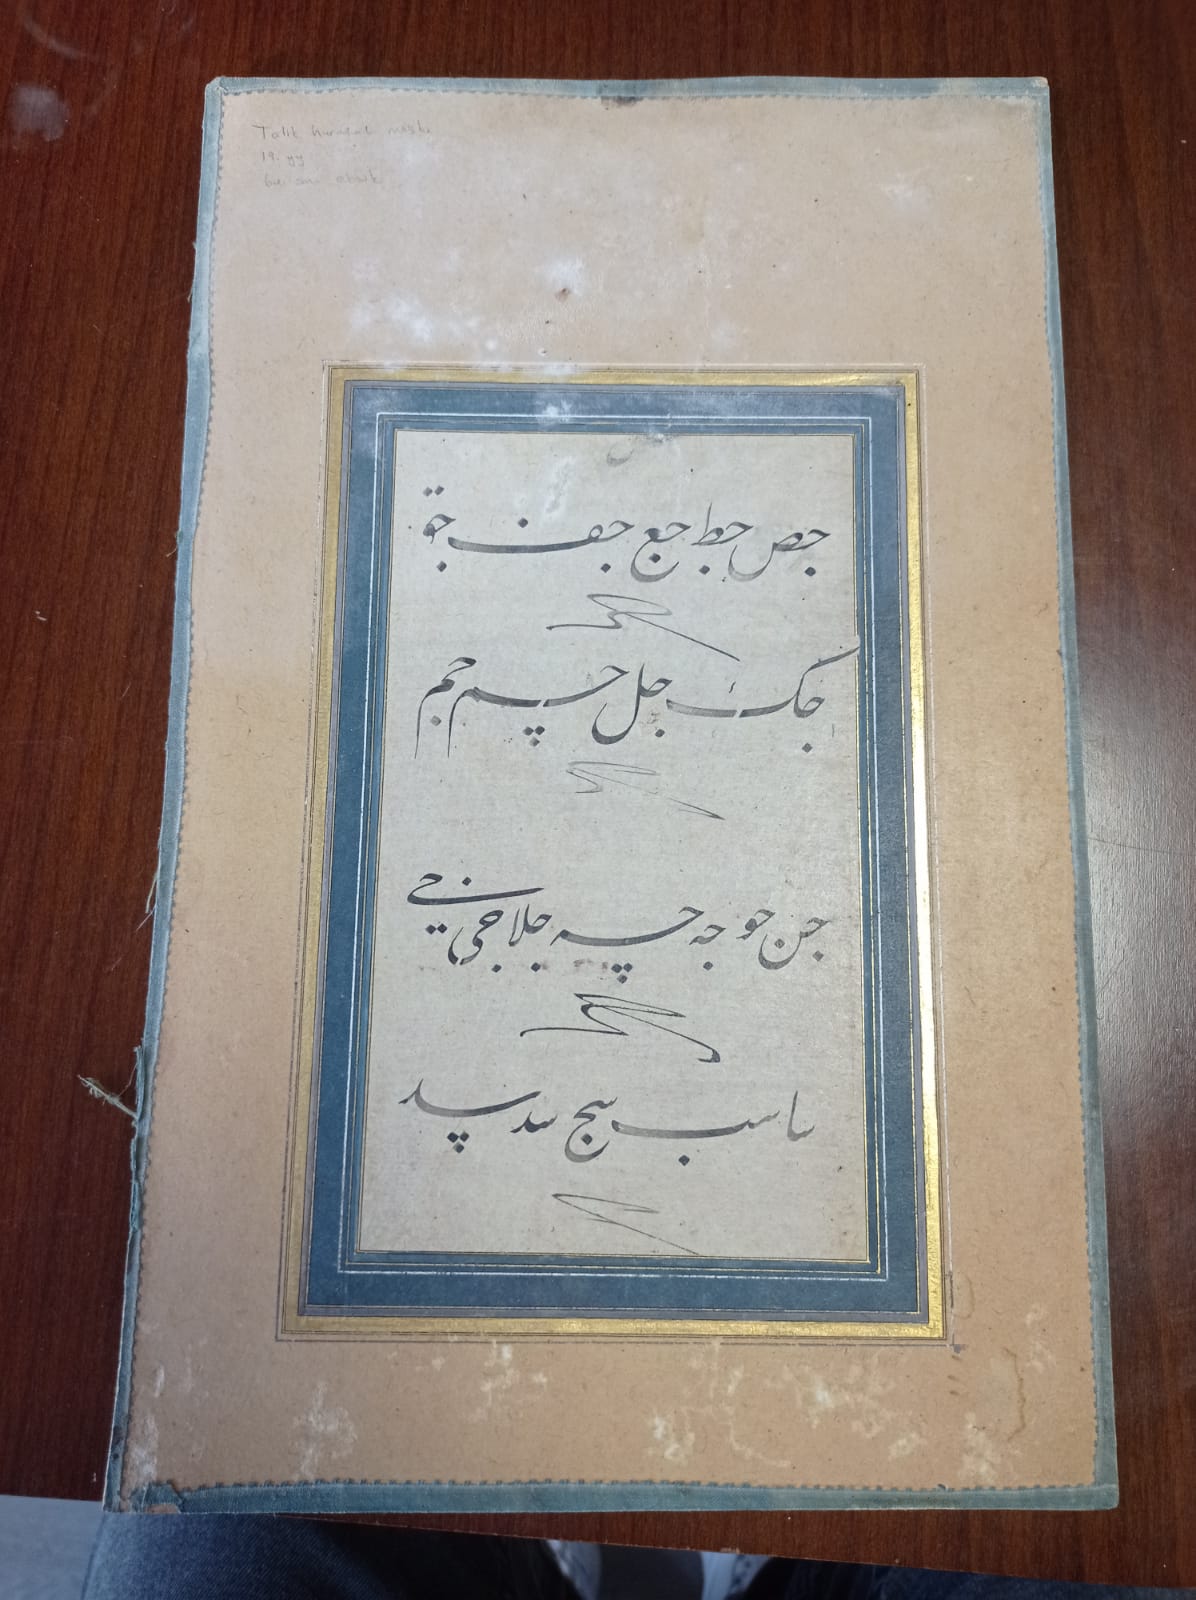 Talik hurufat meşki
19. yy
جص جط جع جف جق
جک جل جم جم
جن جو جه جه جلا جی جی
سا سب سج سد سد